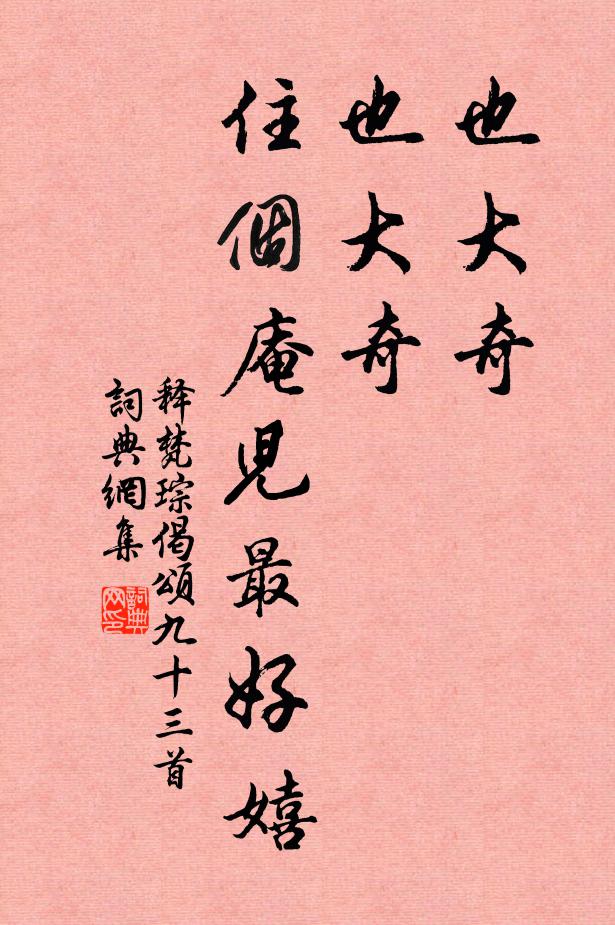 也大奇
也大奇
住個庵兒最好嬉
释梵琮偈頌九十三首
詞典網集
詞典网印